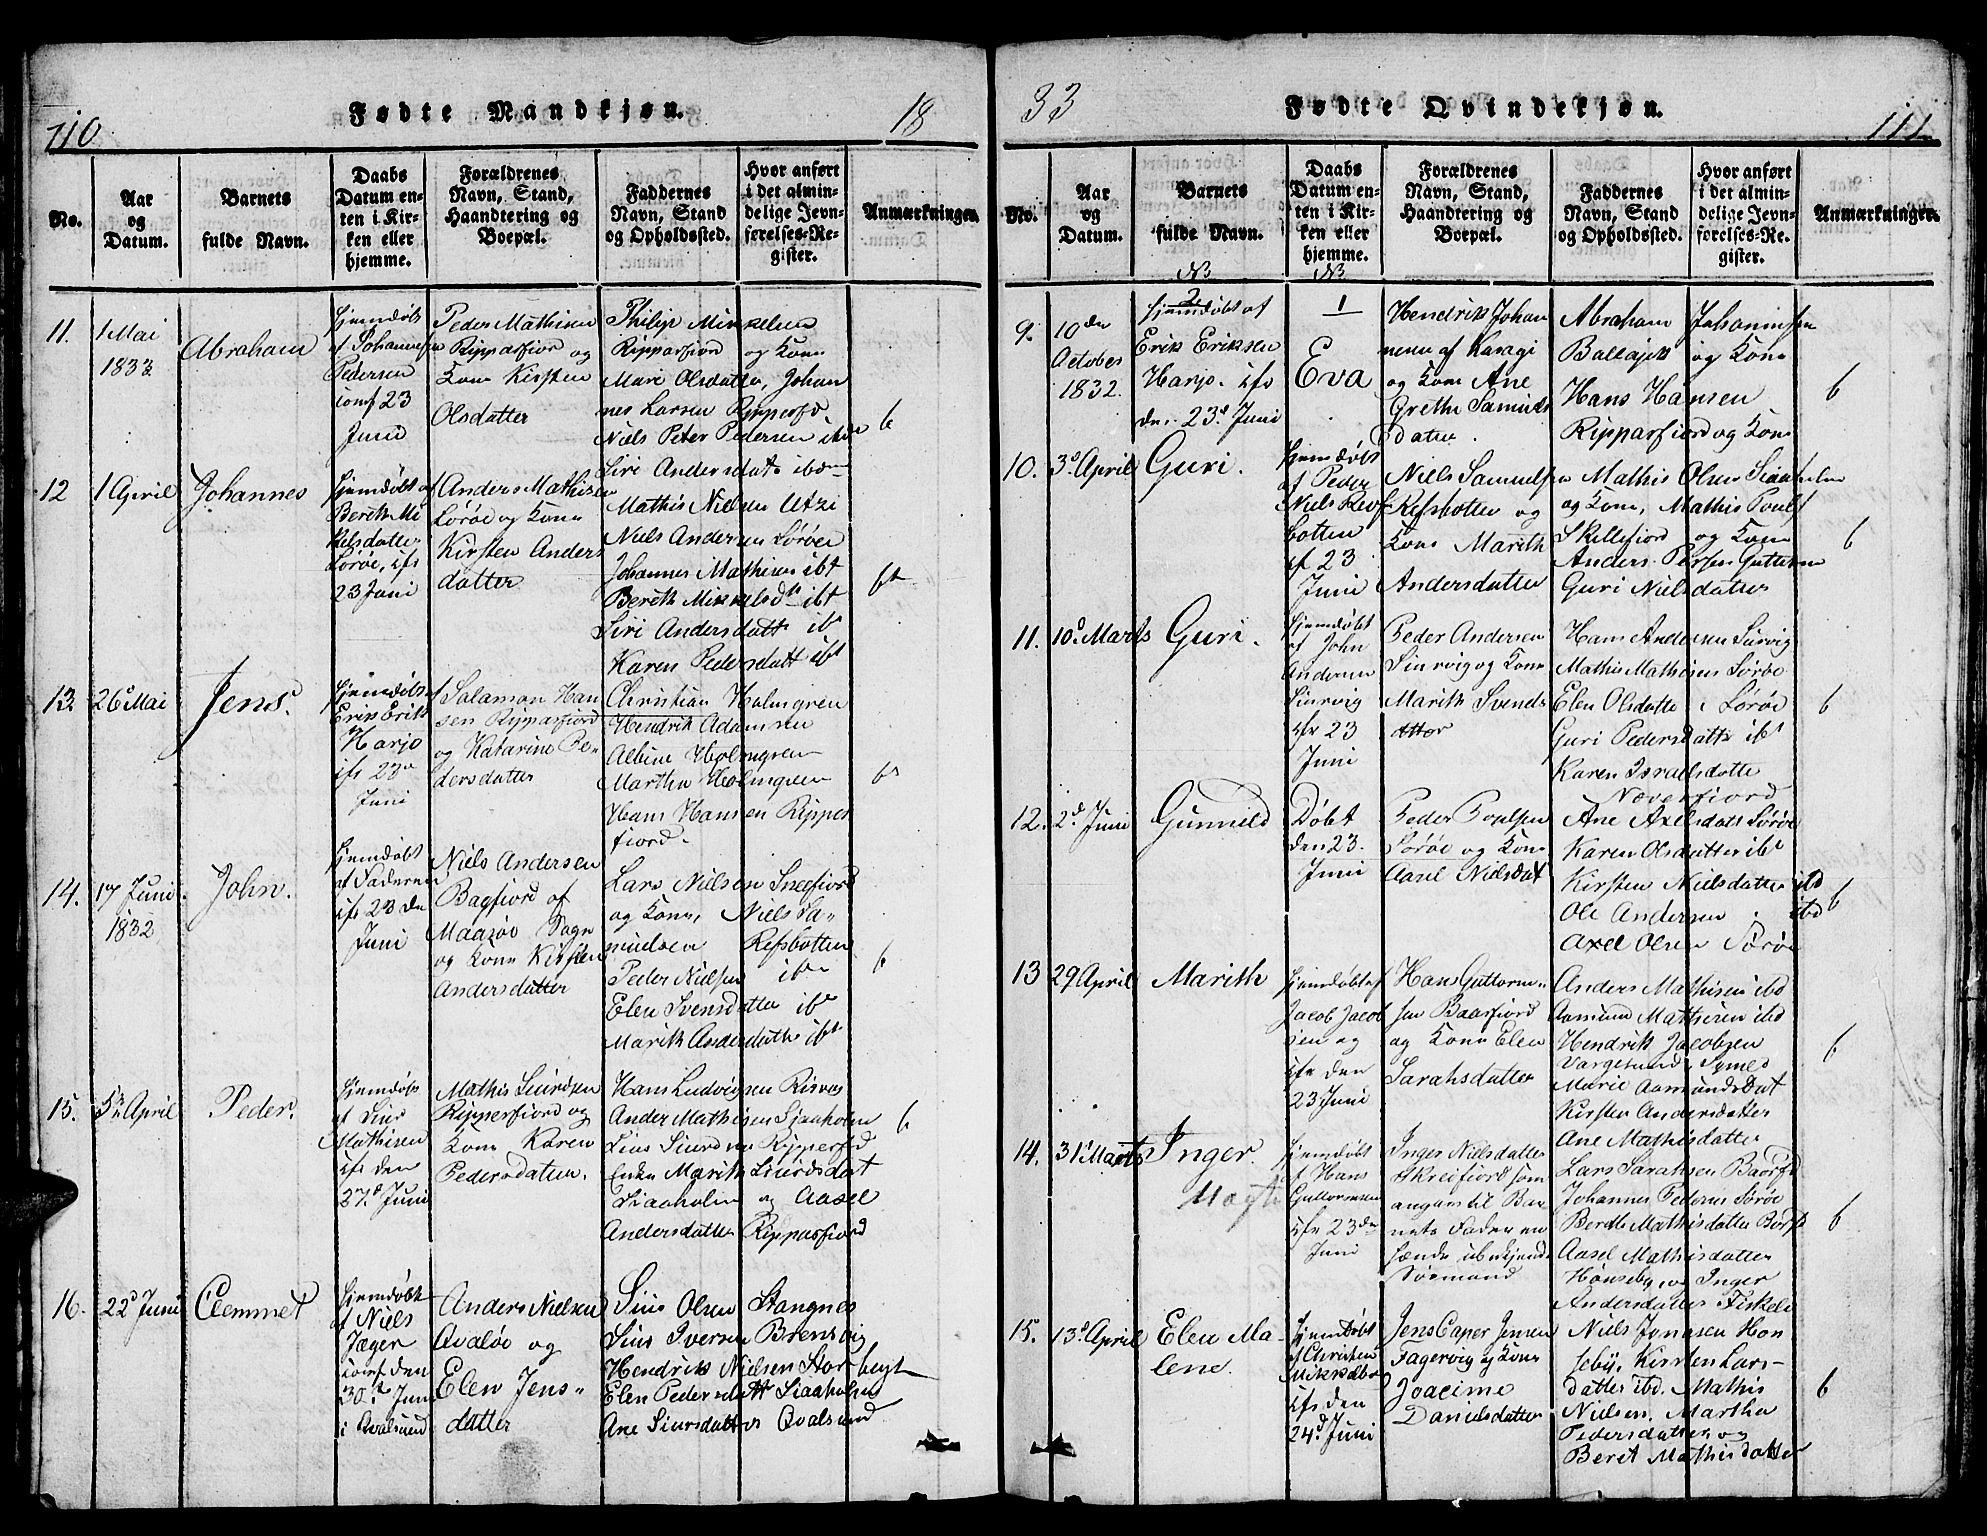 110
Fødte Mandkjøn.
18
No.
Aar
og
Datum.
Barnets
fulde Navn.
Daabs
Datum en-
ten i Kir-
ken eller
hjemme.
Forældrenes
Navn, Stand,
Haandtering og
Boepæl.
Faddernes
Navn, Stand
og Opholdssted.
Hvor anført
i det almin-
delige Jevn-
førelses-Re-
gister.
Anmærkninger.
11.
1 Mai
1833
Abraham
hjemdøbt
af Johannes
Pedersen
conf 23
Juni
Peder Mathisen
Ripparfiord og
Kone Kirsten
Olsdatter
Philip Mikkelsen
Ripparfiord og Kone
Mari Olsdatter, Johan
nes Larsen Ripperfd.
Niels Peter Pedersen
Siri Andersdat
6
12
1 April
Johannes
hjemdøbt af
Bereth Mi
kelsdatter
Sørøe, ifs
23 Juni
Anders Mathisen
Sørøe og Kone
Kirsten Anders
datter
Mathis Nielsen Utzi
Niels Andersen Sørøe
Johannes Mathisen ibt
Bereth Mikkelsd ibt
Siri Andersdatt ibt
Karen Pedersdatt ibt
6
13.
26 Mai
Jens.
hjemdøbt af
Erik Eriks
Harjo
ifs 23
Juni
Salamon Han
sen Ripparfiord
og Katarine Pe-
dersdatter
Christian Holmgren
Hendrik Adamsen
Albine Holmgreen
Martha Holmgreen
Hans Hansen Ripper
fiord.
6
14.
17 Juni
1832
John.
hjemdøbt
af Faderen
ifs 23 de
Juni
Niels Andersen
Bagfiord af
Maasøe Sogn
og Kone Kirsten
Andersdatter
Lars Nielsen Sneefiord
og Kone, Niels Sa-
muelsen Refsbotten
Peder Nielsen
Elen Svensdatter
Marith Andersdatter ibt
6
15.
5 April
Peder.
hjemdøbt
af Sius
Mathisen
ifs den
27 Juni
Mathis Siurdsen
Ripperfiord og
Kone Karen
Pedersdatter.
Hans Ludvigsen Risvog
Ander Mathisen Sjaaholm
Sius Siursen Ripperfd
Enke Marith Siursdat
Siaaholm og Aasel
Andersdatter Ripparfiord
6
16.
22 Juni
Clemmet
hjemdøbt
af Niels
Jæger
conf den
30 Juni
i Qvalsund
Anders Nielsen
Qvaløe og
Elen Jens-
datter
Sius Olsen Stangnes
Sius Iversen Brensvig
Hendrik Nielsen Storbugt
Elen Pedersdatt Siaaholm
Ane Siursdatt Qvalsund
33
Fødte Qvindekjøn.
111
No.
Aar
og
Datum.
Barnets
fulde Navn.
Daabs
Datum en-
ten i Kir-
ken eller
hjemme.
Forældrenes
Navn, Stand,
Haandtering og
Boepæl.
Faddernes
Navn, Stand
og Opholdssted.
Hvor anført
i det almin-
delige Jevn-
førelses-Re-
gister.
Anmærkninger.
NB
NB
9.
10 de
October
1832.
2
hjemdøbt af
Erik Eriksen
Harjo. ifs
den 23 Juni
1
Eva
Hendrik Johan
nesen af Karagi
og Kone Ane
Grethe Samuels
datter.
Abraham Johannesen
Ballajok og Kone
Hans Hansen
Ripparfiord og Kone
6
10.
3 April
Guri.
hjemdøbt
af Peder
Niels Refs
botten
if 23
Juni
Niels Samuelsen
Refsbotten og
Kone Marith
Andersdatter
Mathis Olsen Siaaholm
og Kone, Mathis Pouls
Skillefiord og Kone
Anders Persen
Guri Nielsdatter
6
11.
10 Marts
Guri.
hjemdøbt
af John
Andersen
Siurvig
ifr 23
Juni
Peder Andersen
Siurvig og Kone
Marith Svends
datter
Hans Andersen Survig
Mathis Mathisen Sørøe
Elen Olsdatte i Sørøe
Guri Pedersdatte ibt
Karen Israelsdatte
Næverfiord
6
12.
2 Juni
Gunnild
Døbt
den 23
Juni
Peder Poulsen
Sørøe og Kone
Aasel Nielsdat
Ane Axelsdatt Sørøe
Karen Olsdatter ibt
Kirsten Nielsdatter ibd
Ole Andersen ibd
Axel Olsen Sørøe
6
13
29 April
Marith
hjemdøbt af
Jacob Jacob
sen og
ifr den
23 Juni
Hans Guttorm-
sen Baasfiord
og Kone Elen
Sarahsdatter
Anders Mathisen ibd
Aamund Mathisen ibd
Hendrik Jacobsen
Vargesund
Marie Aamundsdat
Kirsten Andersdatter
Ane Mathisdatter
6
14.
31 Marts
Inger
hjemdøbt
af Hans
Guttormsen
ifr 23 de
Juni
Inger Nielsdatter
Skreifiord som
angav til Bar
nets Fader en
hende ubekjendt
Sørmand
Lars Sarahsen Baasfd
Johannes Pedersen Sørøe
Berdt Mathisdatter
Aasel Mathisdatter
Hønseby, og Inger
Andersdatter
6
15.
13 April
Elen Ma-
lene.
hjemdøbt
af Christen
Mikkelsen
ifs den
24 Juni
Jens Caper Jensen
Fagervig og Kone
Joacime
Danielsdatter
Niels Jonasen Hon
seby, Kirsten Lars-
datter ibd. Mathis
Nielsen, Martha
Pedersdatter og
Beret Mathisdatter
6